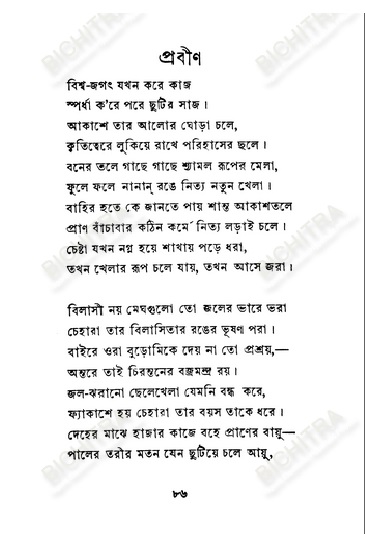 প্রবীণ
বিশ্ব-জগৎ যখন করে কাজ
স্পর্ধা ক'রে পরে ছুটির সাজ।
আকাশে তার আলোর ঘোড়া চলে,
কৃতিত্বেরে লুকিয়ে রাখে পরিহাসের ছলে।
বনের তলে গাছে গাছে শ্যামল রূপের মেলা,
ফুলে ফলে নানান্ রঙে নিত্য নতুন খেলা॥
বাহির হতে কে জানতে পায় শান্ত আকাশতলে
প্রাণ বাঁচাবার কঠিন কর্মে নিত্য লড়াই চলে।
চেষ্টা যখন নগ্ন হয়ে শাখায় পড়ে ধরা,
তখন খেলার রূপ চলে যায়, তখন আসে জরা।
বিলাসী নয় মেঘগুলো তো জলের ভারে ভরা
চেহারা তার বিলাসিতার রঙের ভূষণ পরা।
বাইরে ওরা বুড়োমিকে দেয় না তো প্রশ্রয়,—
অন্তরে তাই চিরন্তনের বজ্রমন্দ্র রয়।
জল-ঝরানো ছেলেখেলা যেমনি বন্ধ করে,
ফ্যাকাশে হয় চেহারা তার বয়স তাকে ধরে।
দেহের মাঝে হাজার কাজে বহে প্রাণের বায়ু—
পালের তরীর মতন যেন ছুটিয়ে চলে আয়ু,
৮৬
BICHITRA